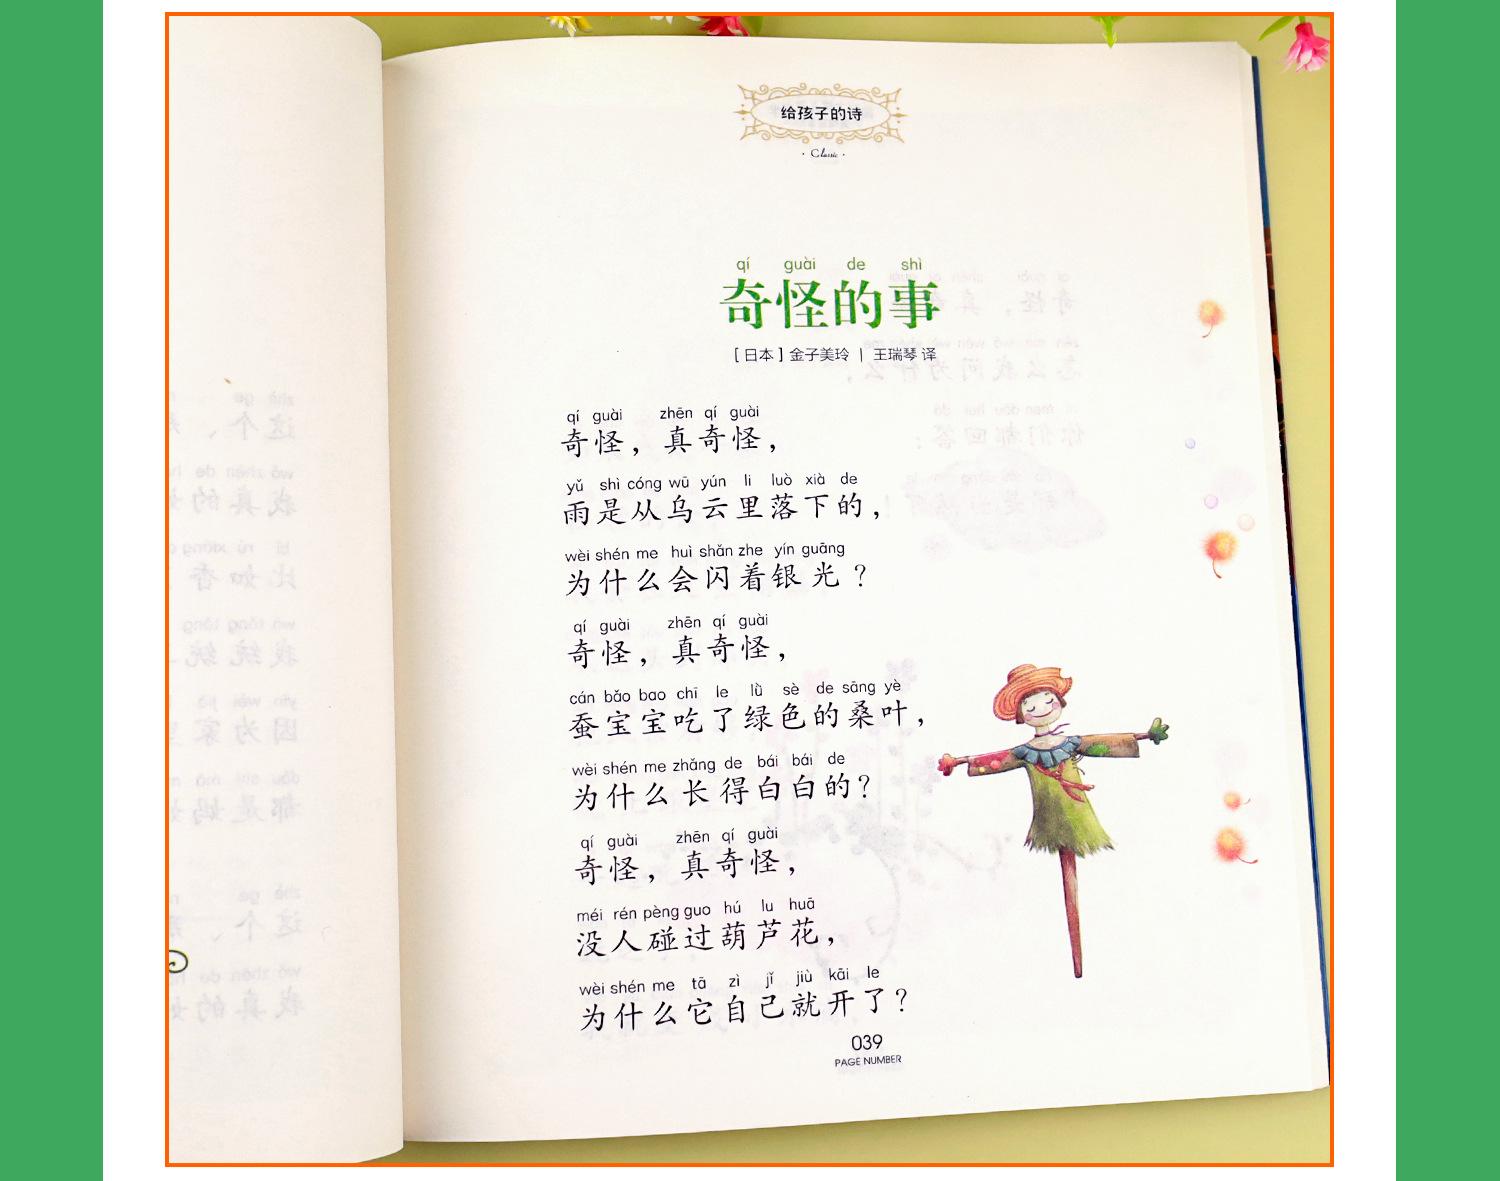 给孩子的诗
· Classic ·
qí guài de shì
奇怪的事
[日本] 金子美玲 | 王瑞琴 译
qí guài zhēn qí guài
奇怪，真奇怪，
yǔ shì cóng wū yún li luò xià de
雨是从乌云里落下的，
wèi shén me huì shǎn zhe yín guāng
为什么会闪着银光？
qí guài zhēn qí guài
奇怪，真奇怪，
cán bǎo bao chī le lǜ sè de sāng yè
蚕宝宝吃了绿色的桑叶，
wèi shén me zhǎng de bái bái de
为什么长得白白的？
qí guài zhēn qí guài
奇怪，真奇怪，
méi rén pèng guo hú lu huā
没人碰过葫芦花，
wèi shén me tā zì jǐ jiù kāi le
为什么它自己就开了？
039
PAGE NUMBER